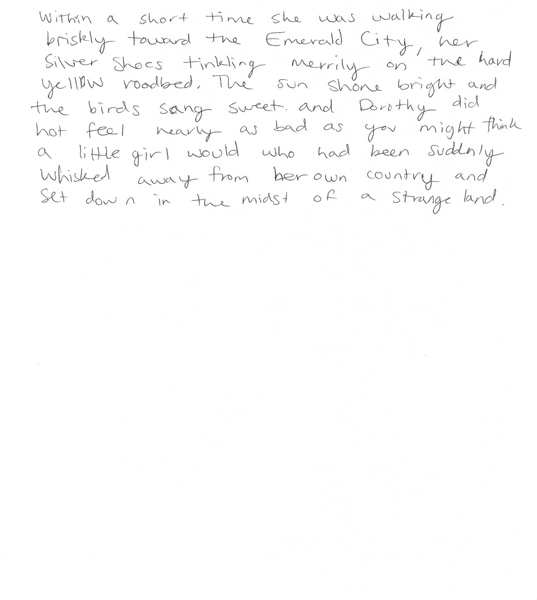 Within a short time she was walking
briskly toward the Emerald City, her
Silver Shoes tinkling merrily on the hard
yellow roadbed. The sun shone bright and
the birds sang sweet and Dorothy did
not feel nearly as bad as you might think
a little girl would who had been suddnly
whisked away from her own country and
set down in the midst of a strange land.